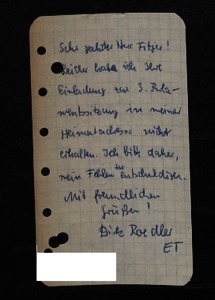 Sehr geehrter Herr Fitzer!
Leider habe ich Ihre
Einladung zur 3. Ple-
narratssitzung in meiner
Heimatadresse nicht
erhalten. Ich bitte daher,
mein Fehlen zu entschuldigen.
Mit freundlichen
Grüßen!
Dirk Roedler
ET